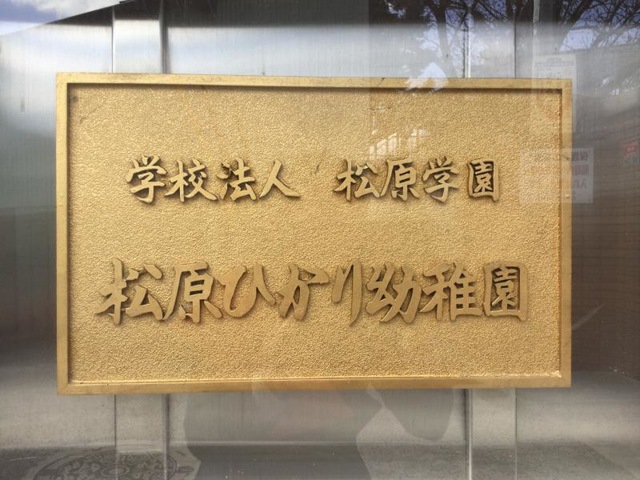 学校法人 松原学園
松原ひかり幼稚園